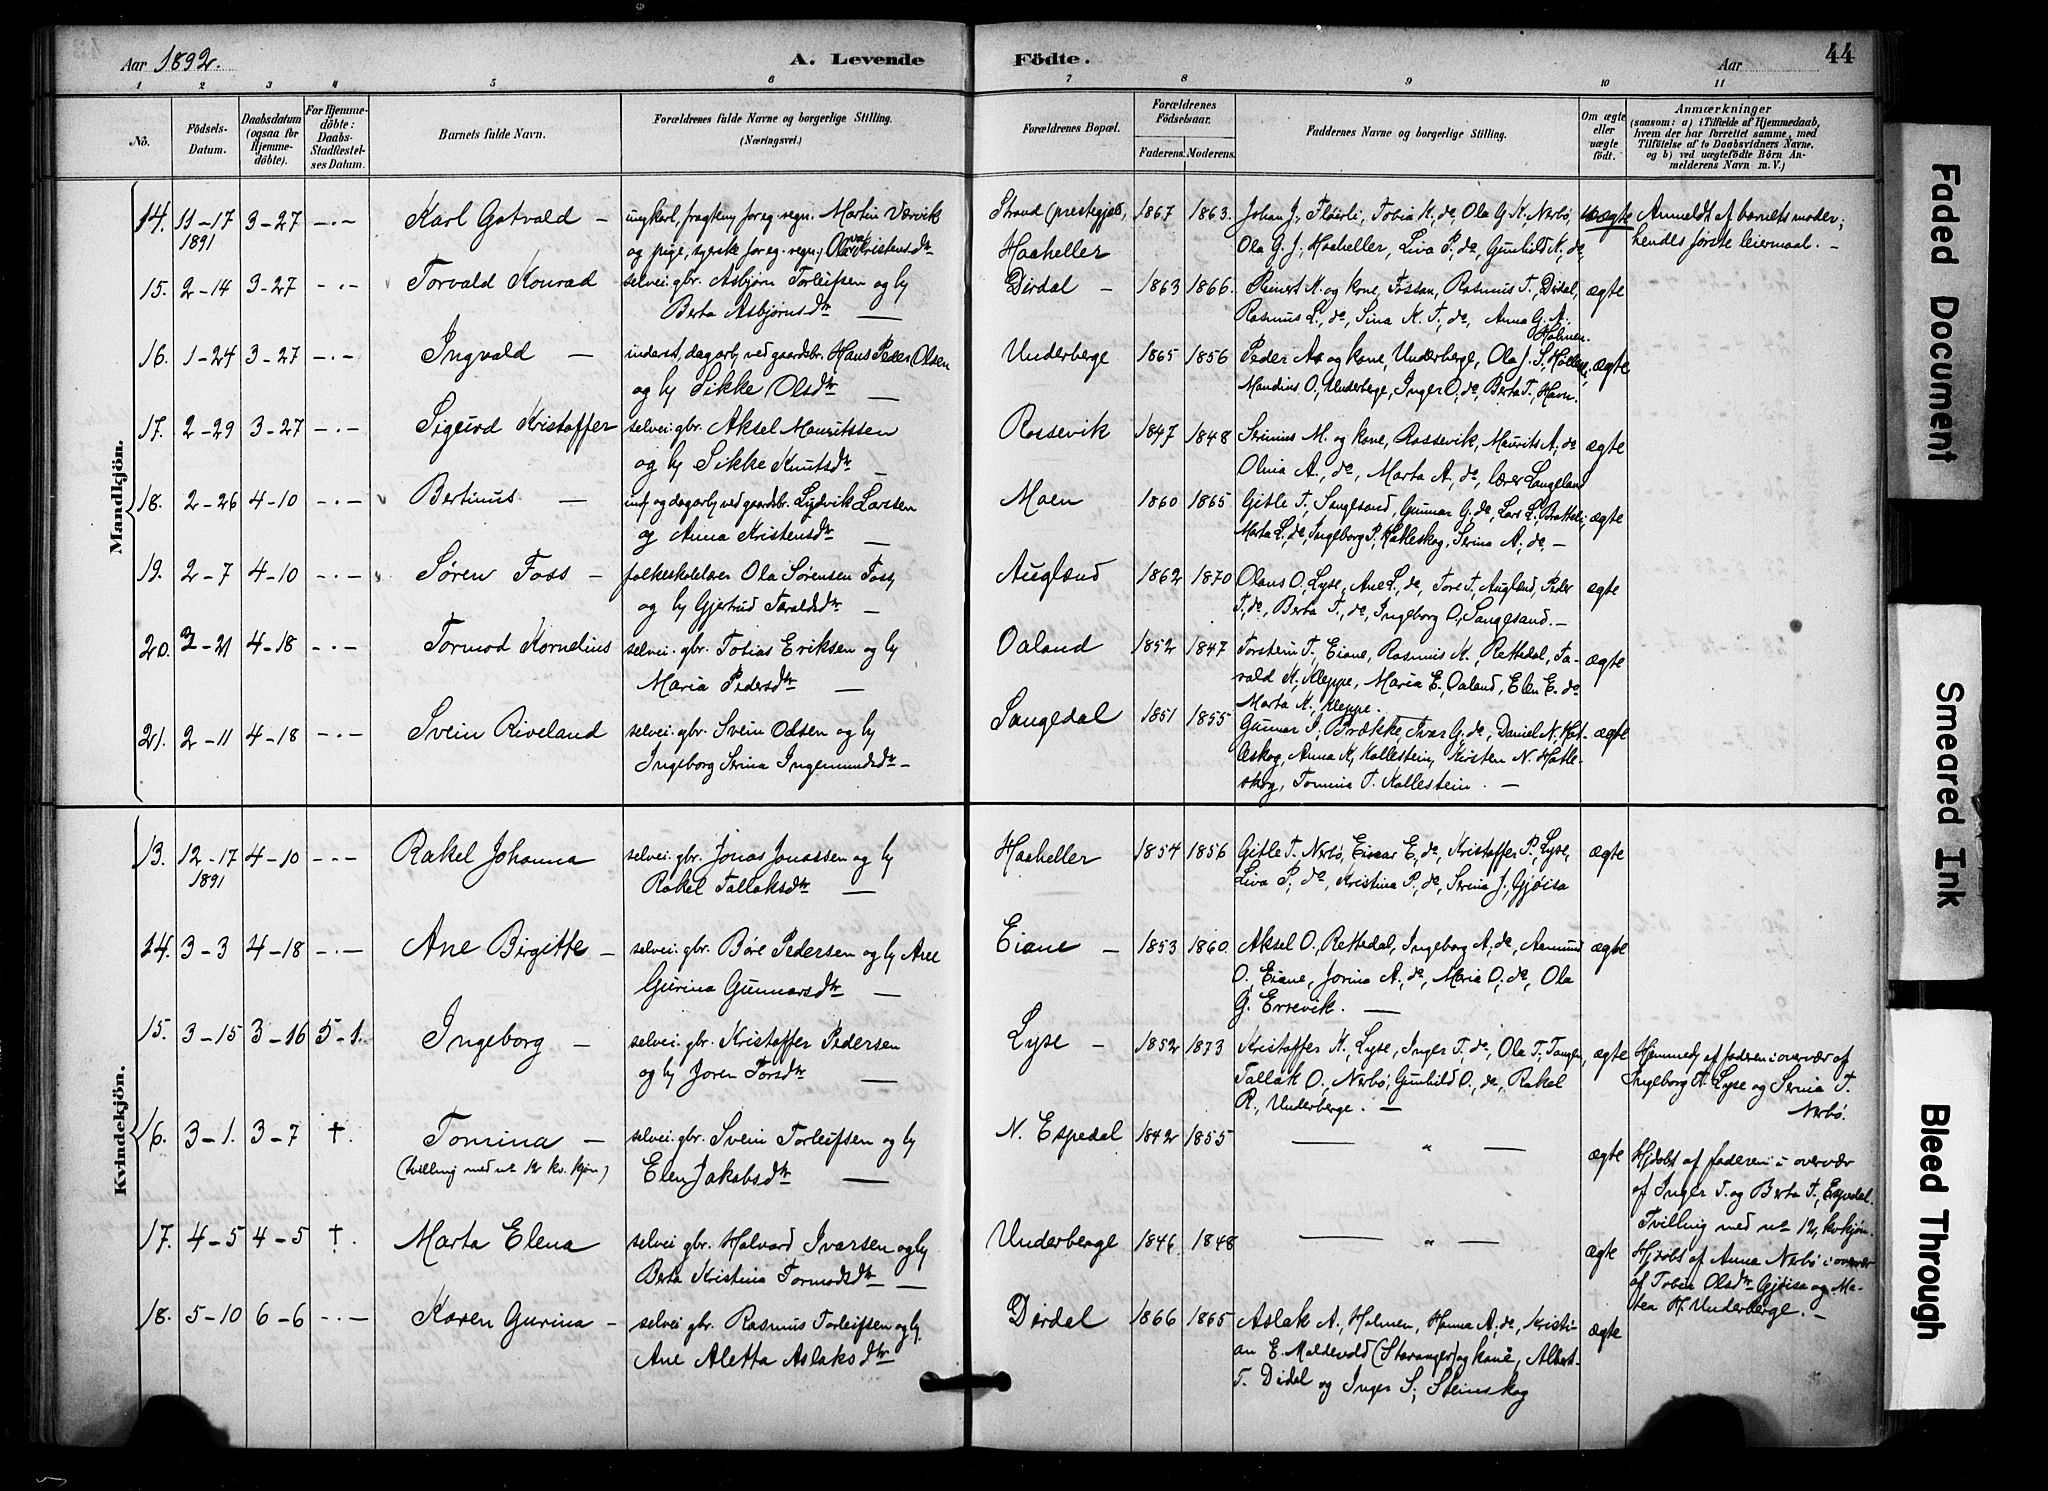 Aar 1892.
A. Levende Födte.
Aar
44
1 2 3 4 5 6 7 8 9 10 11
No.
Födsels-Datum.
Daabsdatum (ogsaa for Hjemmedöbte).
For Hjemmedöbte: Daabs-Stadfæstelses Datum.
Barnets fulde Navn.
Forældrenes fulde Navne og borgerlige Stilling. (Næringsvei.)
Forældrenes Bopæl.
Forældrenes Födselsaar.
Faderens. Moderens.
Faddernes Navne og borgerlige Stilling.
Om ægte eller uægte födt.
Anmærkninger (saasom: a) i Tilfælde af Hjemmedaab, hvem der har forrettet samme, med Tilföielse af to Daabsvidners Navne, og b) ved uægtefödte Börn Anmelderens Navn m. V.)
Mandkjön.
14. 11-17 1891 3-27 -.- Karl Gotvald - ungkarl, Martin Værvik
og pige, Kristensdtr
Strand (prestegjæld), Haaheller 1867 1863. Johan J., Fløirli, Tobia K., do, Ola G. K. Nerbø, uægte Anmeldt af barnets moder;
Ola G. J., Haaheller, Liva P., do, Gunhild K., do, hendes første leiermaal. -
15. 2-14 3-27 -.- Torvald Konrad selvei. gbr. Asbjørn Torleifsen og h
Berta Asbjørnsdtr -
Dirdal - 1863 1866. Reinert M. og kone, Fossan, Rasmus T., Dirdal, ægte
Rasmus L., do, Sina K. T., do, Anna G. A., Holmen.
16. 1-24 3-27 -.- Ingvald - inderst, dagarb. ved gaardsbr. Hans Peder Olsen
og h Sikke Olsdtr -
Underberge 1865 1856 Peder As og kone, Underberge, Ola J. S., ægte
Mandius O., Underberge, Inger O., do, Berta T., Havn.
17. 2-29 3-27 -.- Sigurd Kristoffer selvei. gbr. Aksel Mauritssen
og h Sikke Knutsdtr -
Rossevik 1847 1848 M. og kone, Rossevik, Maurits A., do ægte
Olina A., do, Marta A., do, lærer Langeland
18. 2-26 4-10 -.- Bertinus - ind. og dagarb. ved gaardsbr. Lydvik Larsen
og Anna Kristensdtr -
Moen 1860 1865 Gitle T., Sanglsand, Gunnar G., do, Lars L., Bratteli, ægte
Marta L., do, Ingeborg P., Hatleskog, Serina A., do, -
19. 2-7 4-10 -.- Søren Foss - folkeskolelærer Ola Sørensen Foss
og h Gjertrud Taraldsdtr -
Augland 1862 1870 Olaus O., Lyse, Ane L., do, Tore T., Augland, Peder ægte
T., do, Berta T., do, Ingeborg O., Sangesand. -
20. 2-21 4-18 -.- Tormod Kornelius selvei. gbr. Tobias Eriksen og h
Maria Pedersdtr -
Oaland 1852 1847 Torstein T., Eiane, Rasmus K., Rettedal, Ta- ægte
rald K., Kleppe, Maria E., Oaland, Elen E. do
Marta K., Kleppe.
21. 2-11 4-18 -.- Svein Riveland selvei. gbr. Svein Olsen og h
Ingeborg Serina Ingemundsdtr -
Sangedal 1851 1855 Gunnar I., Brække, Ivar G., do, Daniel N. Hat- ægte
leskog, Anna K., Kallestein, Kirsten N. Hatle-
skog, Tomina T. Kallestein. -
Kvindekjön.
13. 12-17 1891 4-10 -.- Rakel Johanna selvei. gbr. Jonas Jonassen og h
Rakel Tallaksdtr -
Haaheller 1854 1856 Gitle T. Nerbø, Einar E., do, Kristoffer P., Lyse, ægte
Liva P., do, Kristina P., do, Serina J., Gjøisa
14. 3-3 4-18 -.- Ane Birgitte - selvei. gbr. Børe Pedersen og h Ane
Gurina Gunnarsdtr -
Eiane - 1853 1860. Aksel O. Rettedal, Ingeborg A., do, Aamund ægte
O., Eiane, Jorina A., do, Maria O., do, Ola
G. Errevik. -
15. 3-15 3-16 5-1. Ingeborg - selvei. gbr. Kristoffer Pedersen
og h Joren Torsdtr -
Lyse - 1852 1873 Kristoffer K., Lyse, Inger T., do, Ola T., Tangen, ægte Hjemmedb. af faderen i overvær af
Tallak O., Nerbø, Gunhild O., do, Rakel Ingeborg A. Lyse og Serina T.
R., Underberge. - Nerbø.
16. 3-1. 3-7 † Tomina - selvei. gbr. Svein Torleifsen og h
(tvilling med no 12 kv. kjøn) Elen Jakobsdtr -
N. Espedal 1842 1855 - „ - ægte Hjdøbt af faderen i overvær
af Inger T. og Berta T., Espedal.
Tvilling med no 12, kvkjøn.
17. 4-5 4-5 †. Marta Elena selvei gbr. Halvard Ivarsen og h
Berta Kristina Tormodsdtr -
Underberge 1846. 1848 - „ - ægte Hjdøbt af Anna Nerbø i overvær
af Tobia Olsdtr Gjøisa og Ma-
tea H. Underberge. -
18. 5-10 6-6 -.- Karen Gurina - selvei gbr. Rasmus Torleifsen og h
Ane Aletta Aslaksdtr
Dirdal 1866 1865 Aslak A., Holmen, Hanna A., do, Kristi- ægte
an E. Maldevold (Stavanger) og kone, Albert
T. Didal og Inger S., Steinskog
Faded Document
Smeared Ink
Bleed Through